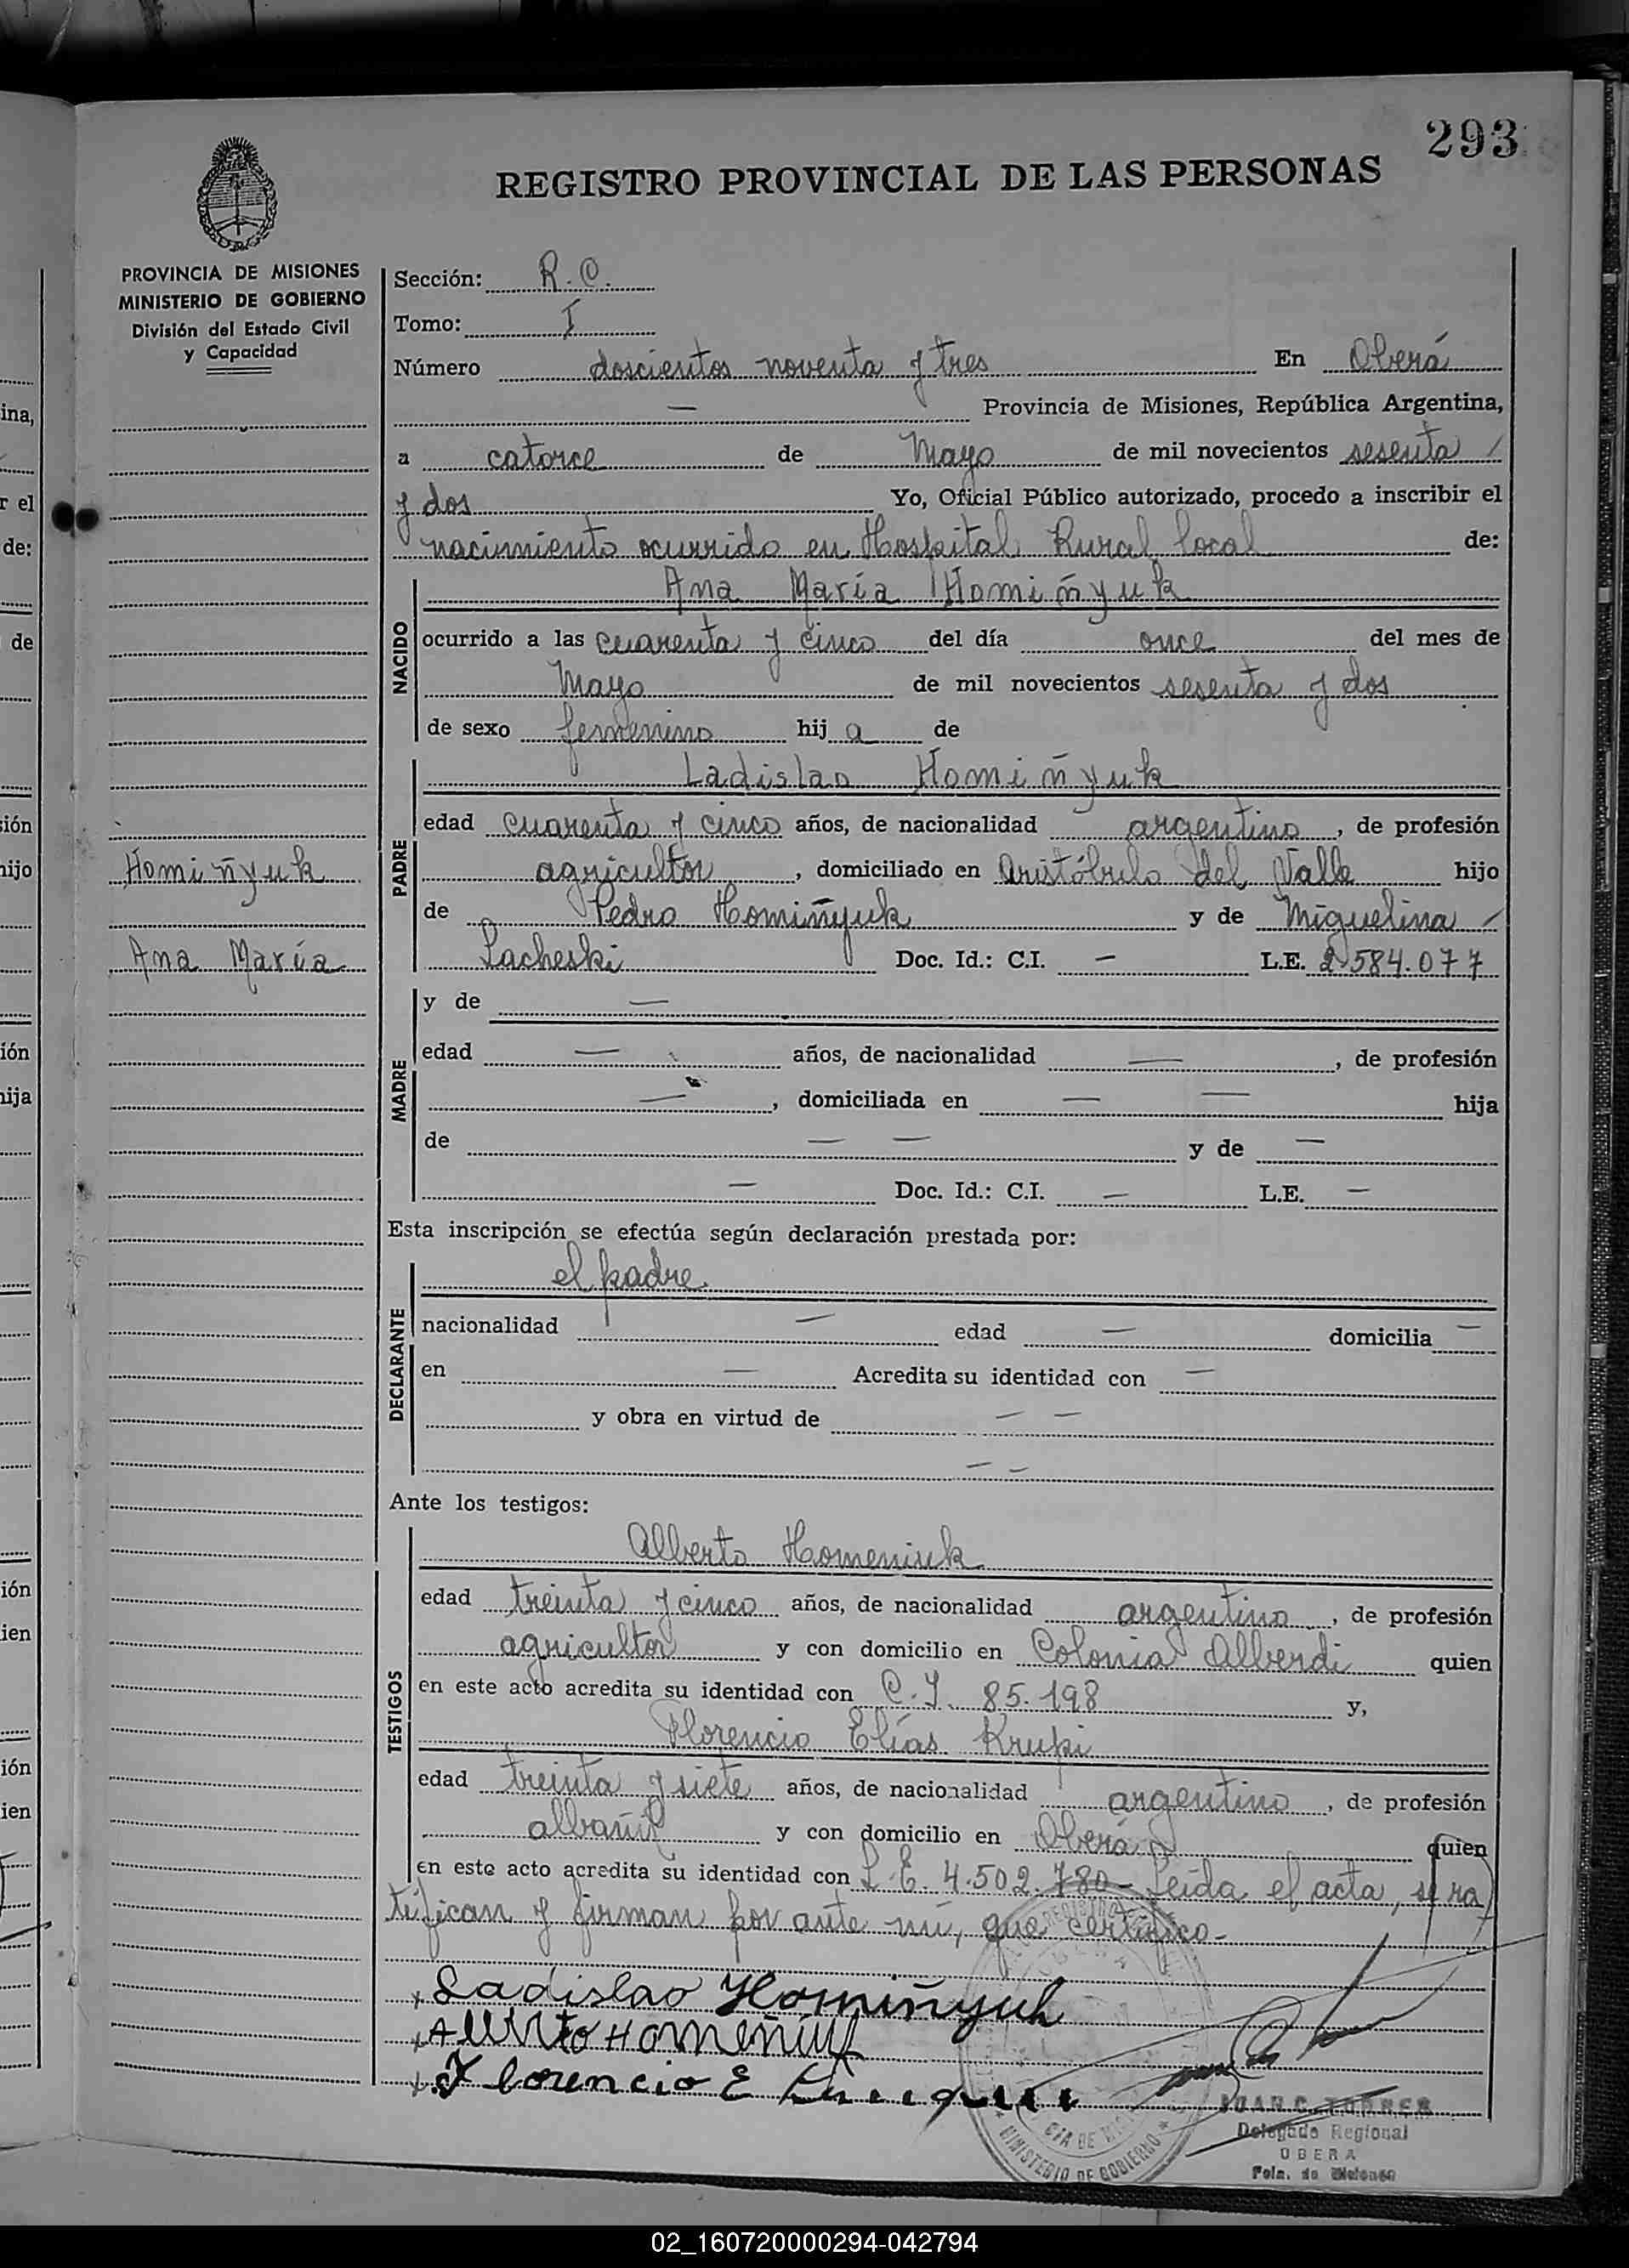 293
REGISTRO PROVINCIAL DE LAS PERSONAS
PROVINCIA DE MISIONES
MINISTERIO DE GOBIERNO
División del Estado Civil
y Capacidad
Sección: R.C.
Tomo: I
Número doscientos noventa y tres En Oberá
— Provincia de Misiones, República Argentina,
a catorce de Mayo de mil novecientos sesenta /
y dos Yo, Oficial Público autorizado, procedo a inscribir el
nacimiento ocurrido en Hospital Rural local de:
NACIDO
Ana María Homiñyuk
ocurrido a las cuarenta y cinco del día once del mes de
Mayo de mil novecientos sesenta y dos
de sexo femenino hij a de
PADRE
Ladislao Homiñyuk
edad cuarenta y cinco años, de nacionalidad argentino, de profesión
agricultor, domiciliado en Aristóbulo del Valle hijo
de Pedro Homiñyuk y de Miguelina /
Lacheski Doc. Id.: C.I. — L.E. 2.584.077
Homiñyuk
Ana María
MADRE
y de —
edad — años, de nacionalidad —, de profesión
—, domiciliada en — — hija
de — — y de —
— Doc. Id.: C.I. — L.E. —
Esta inscripción se efectúa según declaración prestada por:
DECLARANTE
el padre.
nacionalidad — edad — domicilia —
en — Acredita su identidad con —
y obra en virtud de — —
— —
Ante los testigos:
TESTIGOS
Alberto Homeniuk
edad treinta y cinco años, de nacionalidad argentino, de profesión
agricultor y con domicilio en Colonia Alberdi quien
en este acto acredita su identidad con C.I. 85.198 y,
Florencio Elías Krupi
edad treinta y siete años, de nacionalidad argentino, de profesión
albañil y con domicilio en Oberá quien
en este acto acredita su identidad con L.E. 4.502.780- Leída el acta, se ra
tifican y firman por ante mí, que certifico-
Ladislao Homiñyuk
Alberto Homeñiuk
Florencio E
JUAN C. TORRES
Delegado Regional
OBERA
Pcia. de Misiones
MINISTERIO DE GOBIERNO
ina,
r el
de:
de
ión
hijo
ión
hija
ión
ien
ión
ien
02_160720000294-042794